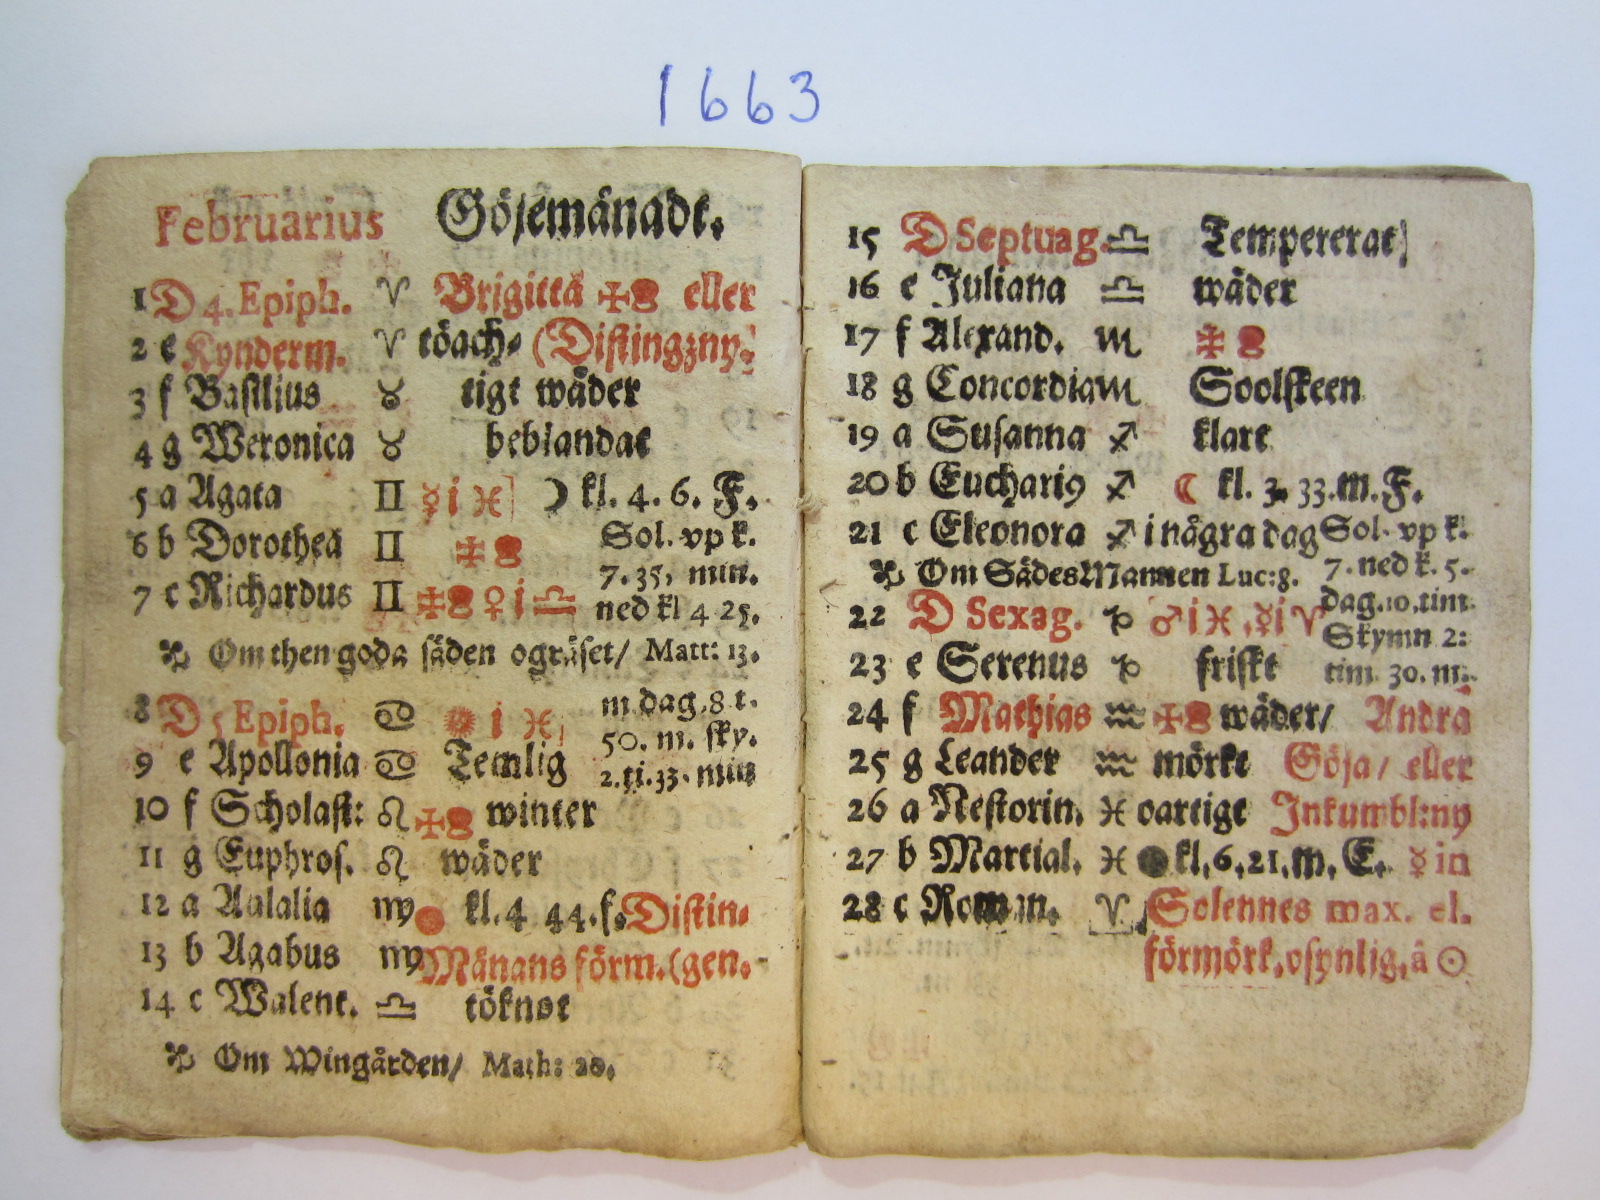 1663
Februarius Göjemånadt.
1 D 4. Epiph. ♈ Brigittä ✠ eller
2 e Kynderm. ♈ töach- (Distingzny.
3 f Basilius ♉ tigt wäder
4 g Weronica ♉ beblandat
5 a Agata ♊ ☿ i ♓ ☽ kl. 4. 6. F.
6 b Dorothea ♊ ✠ Sol. vp k.
7. 35, min.
7 c Richardus ♊ ✠ ♀ i ♎ ned kl 4 25.
Om then goda säden ogräset/ Matt: 13.
8 D 5 Epiph. ♋ i ♓ m dag. 8 t.
50. m. sky.
9 e Apollonia ♋ Temlig 2. ti. 33. min
10 f Scholast: ♌ ✠ winter
11 g Euphros. ♌ wäder
12 a Aulalia ♍ kl. 4 44. f. Distin-
13 b Agabus ♍ Månans förm. (gen.
14 c Walent. ♎ töknot
Om Wingården/ Math: 20.
15 D Septuag. ♎ Tempererat
16 e Juliana ♎ wäder
17 f Alexand. ♏ ✠
18 g Concordia ♏ Soolskeen
19 a Susanna ♐ klart
20 b Euchari9 ♐ ☾ kl. 3. 33. m. F.
21 c Eleonora ♐ i några dag Sol. vp k.
Om SädesMannen Luc: 8. 7. ned k. 5.
dag. 10. tim.
22 D Sexag. ♑ ♂ i ♓, ☿ i ♈ Skymn 2:
23 e Serenus ♑ friskt tim 30. m.
24 f Mathias ♒ ✠ wäder/ Andra
25 g Leander ♒ mörkt Göja/ eller
26 a Nestorin. ♓ oartigt Inkumbl: ny
27 b Martial. ♓ kl. 6. 21. m. E. ☿ in
28 c Roman. ♈ Solennes max. el.
förmörk. osynlig, å ☉